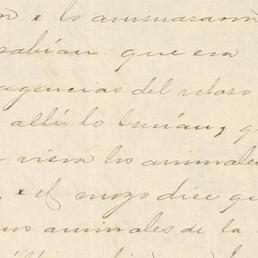 e lo amenazaron
sabían que era
agencias del retozo
allí lo tenían, q
viera los animale
, el mozo dice qu
us animales de la